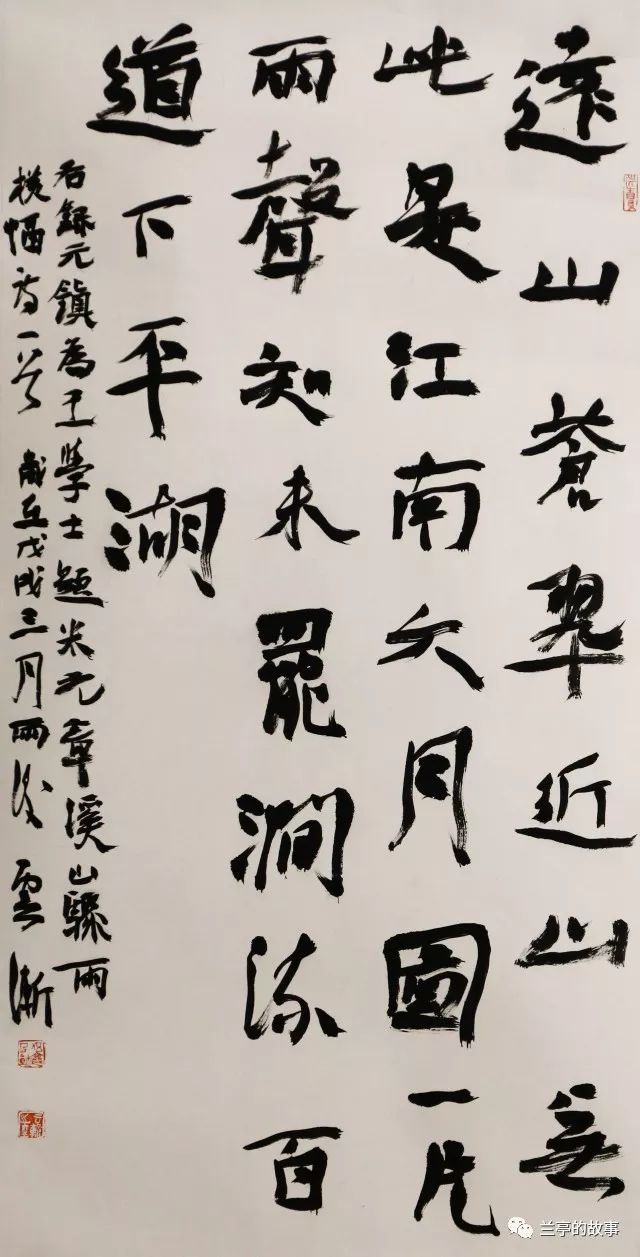 遠山蒼翠近山無
此是江南六月圖一片
雨聲知未罷澗流百
道下平湖
右錄元鎮為王學士題米元章溪山驟雨
橫幅詩一首 歲在戊戌三月雨後 雲漸
兰亭的故事